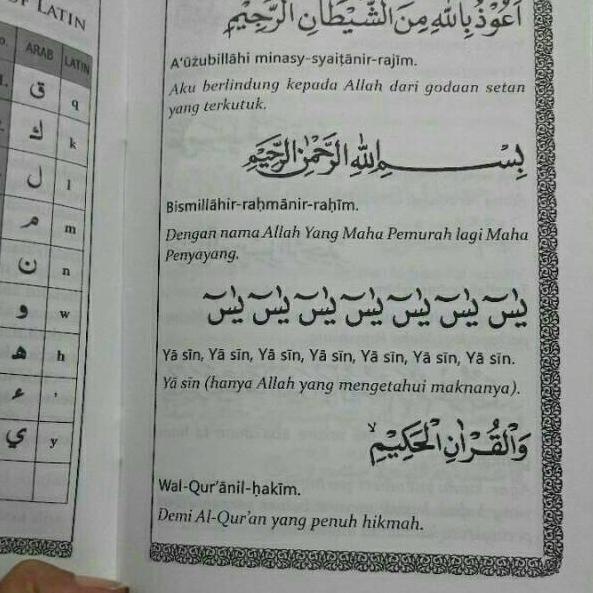 LATIN
ARAB LATIN
ق q
ك k
ل l
م m
ن n
و w
ه h
ء '
ي y
اَعُوْذُ بِاللّٰهِ مِنَ الشَّيْطَانِ الرَّجِيْمِ
A'ūżubillāhi minasy-syaiṭānir-rajīm.
Aku berlindung kepada Allah dari godaan setan
yang terkutuk.
بِسْمِ اللّٰهِ الرَّحْمٰنِ الرَّحِيْمِ
Bismillāhir-raḥmānir-raḥīm.
Dengan nama Allah Yang Maha Pemurah lagi Maha
Penyayang.
يٰسۤ يٰسۤ يٰسۤ يٰسۤ يٰسۤ يٰسۤ يٰسۤ
Yā sīn, Yā sīn, Yā sīn, Yā sīn, Yā sīn, Yā sīn, Yā sīn.
Yā sīn (hanya Allah yang mengetahui maknanya).
وَالْقُرْاٰنِ الْحَكِيْمِۙ
Wal-Qur'ānil-ḥakīm.
Demi Al-Qur'an yang penuh hikmah.